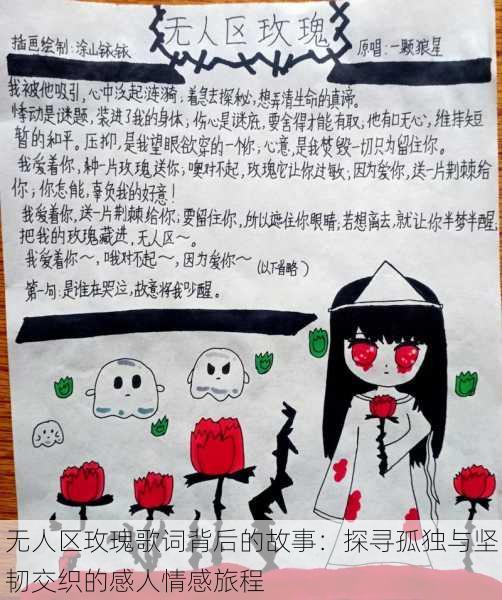 无人区玫瑰
插画绘制：涂山铱铱
原唱：一颗狼星
我被他吸引，心中泛起涟漪；着急去探秘，想弄清生命的真谛。
悸动是谜题，装进了我的身体；伤心是谜底，要舍得才能有取；他有口无心，维持短
暂的和平。压抑，是我望眼欲穿的一个你；心意，是我焚毁一切只为留住你。
我爱着你，种一片玫瑰送你；噢对不起，玫瑰它让你过敏；因为爱你，送一片荆棘给
你；你怎能，辜负我的好意！
我爱着你，送一片荆棘给你；要留住你，所以遮住你眼睛；若想离去，就让你半梦半醒；
把我的玫瑰藏进，无人区～。
我爱着你～，哦对不起～，因为爱你～（以下省略）
第一句：是谁在哭泣，故意将我吵醒。
无人区玫瑰歌词背后的故事：探寻孤独与坚
韧交织的感人情感旅程